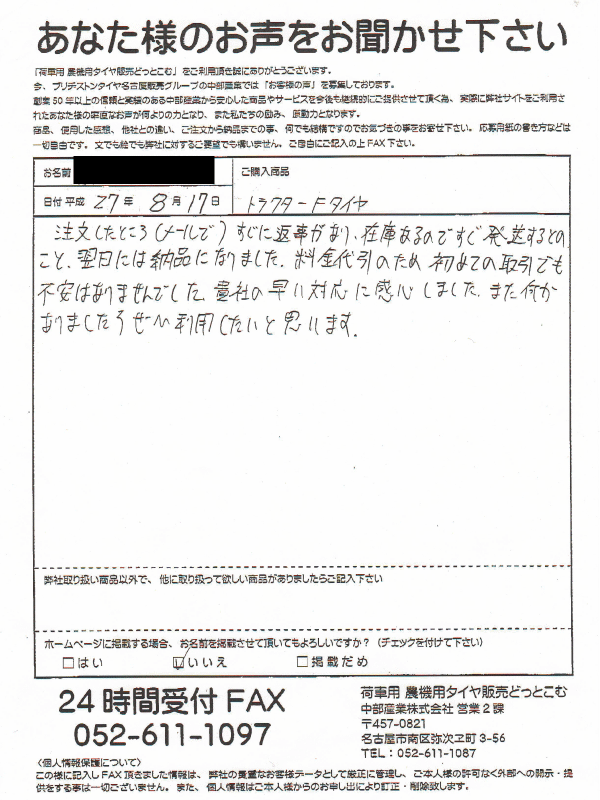 あなた様のお声をお聞かせ下さい
「荷車用 農機用タイヤ販売どっとこむ」をご利用頂き誠にありがとうございます。
今、ブリヂストンタイヤ名古屋販売グループの中部産業では「お客様の声」を募集しております。
創業50年以上の信頼と実績のある中部産業から安心した商品やサービスを今後も継続的にご提供させて頂く為、 実際に弊社サイトをご利用さ
れたあなた様の率直なお声が何よりの力となり、また私たちの励み、 原動力となります。
商品、 使用した感想、 他社との違い、ご注文から納品までの事、何でも結構ですのでお気づきの事をお寄せ下さい。 応募用紙の書き方などは
一切自由です。 文でも絵でも弊社に対するご要望でも構いません。 ご自由にご記入の上FAX下さい。
お名前
ご購入商品
日付 平成 27 年 8 月 17 日
トラクターFタイヤ
注文したところ(メールで)すぐに返事があり、在庫あるのですぐ発送するとの
こと、翌日には納品になりました。料金代引のため初めての取引でも
不安はありませんでした。貴社の早い対応に感心しました。また何か
ありましたらぜひ利用したいと思います。
弊社取り扱い商品以外で、 他に取り扱って欲しい商品がありましたらご記入下さい
ホームページに掲載する場合、 お名前を掲載させて頂いてもよろしいですか? (チェックを付けて下さい)
□はい ☑いいえ □掲載だめ
24時間受付FAX
052-611-1097
荷車用 農機用タイヤ販売どっとこむ
中部産業株式会社 営業2課
〒457-0821
名古屋市南区弥次ヱ町3-56
TEL:052-611-1087
〈個人情報保護について〉
この様に記入しFAX頂きました情報は、 弊社の貴重なお客様データとして厳正に管理し、 ご本人様の許可なく外部への開示・提
供をする事は一切ございません。 また、 個人情報はご本人様からのお申し出により訂正・削除致します。